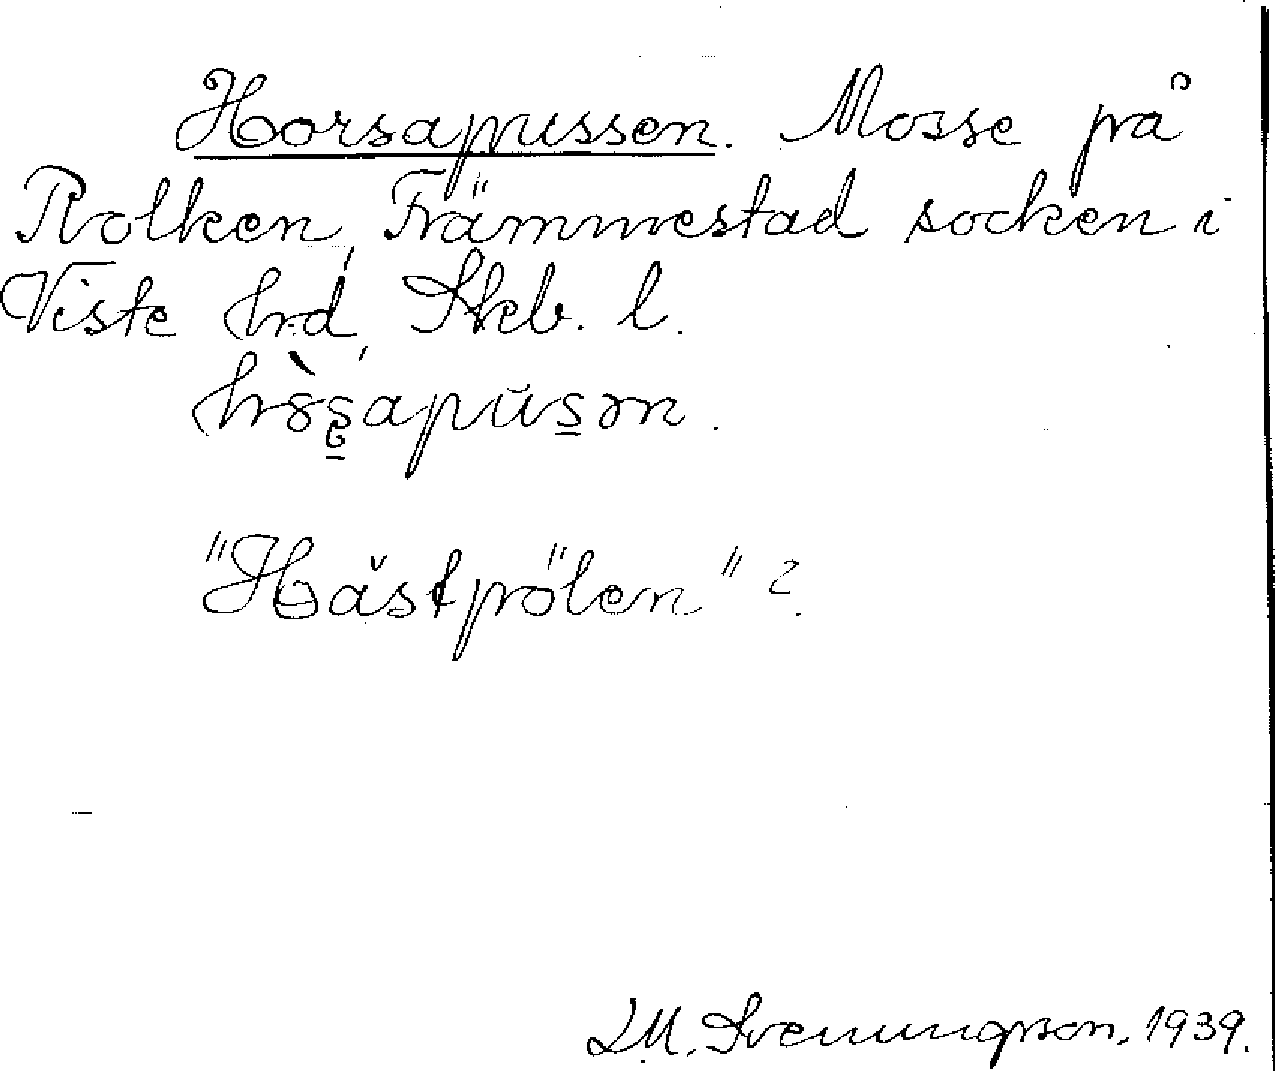 Horsapussen. Mosse på
Rolken, Främmestad socken i
Viste hrd, Skb. l.
"Hästpölen"?
L.M. Svenungson, 1939.